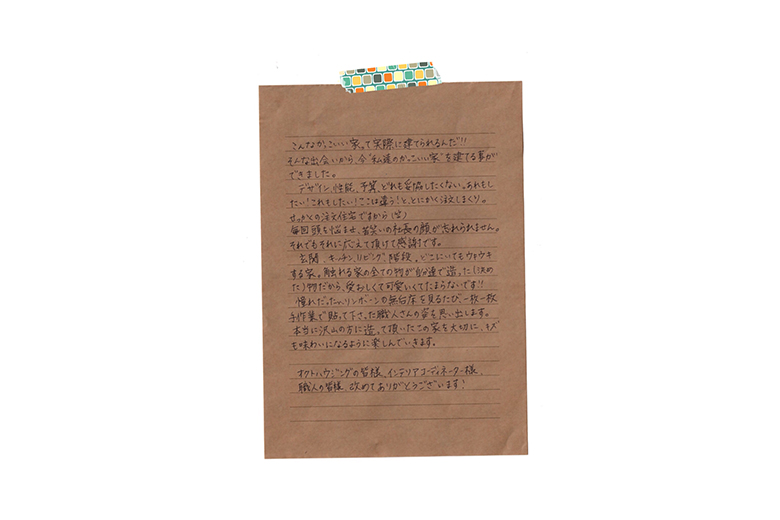 こんなかっこいい家って実際に建てられるんだ!!
そんな出会いから、今"私達のかっこいい家"を建てる事が
できました。
デザイン、性能、予算、どれも妥協したくない。あれもし
たい!これもしたい!ここは違う!と、とにかく注文しまくり。
せっかくの注文住宅ですから(笑)
毎回頭を悩ませ、苦笑いの社長の顔が忘れられません。
それでもそれに応えて頂けて感謝です。
玄関、キッチン、リビング、階段、どこにいてもウキウキ
する家。触れる家の全ての物が自分達で造った(決め
た)物だから、愛おしくて可愛いくてたまらないです!!
憧れだったヘリンボーンの無垢床を見るたび、一枚一枚
手作業で貼って下さった職人さんの姿を思い出します。
本当に沢山の方に造って頂いたこの家を大切に、キズ
も味わいになるように楽しんでいきます。
オクトハウジングの皆様、インテリアコーディネーター様、
職人の皆様、改めてありがとうございます!